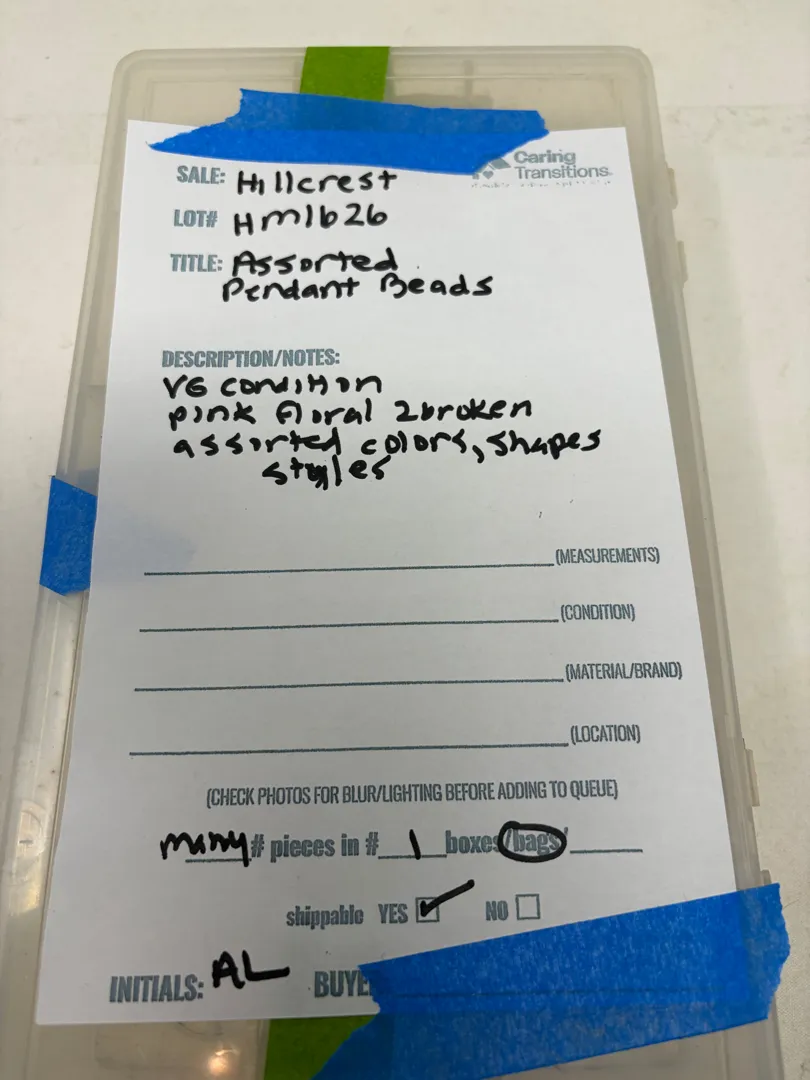 Caring
Transitions.
SALE: Hillcrest
LOT# Hm1b26
TITLE: Assorted
Pendant Beads
DESCRIPTION/NOTES:
VG condition
pink floral 2broken
assorted colors, shapes
styles
(MEASUREMENTS)
(CONDITION)
(MATERIAL/BRAND)
(LOCATION)
(CHECK PHOTOS FOR BLUR/LIGHTING BEFORE ADDING TO QUEUE)
many # pieces in # 1 boxes/bags/
shippable YES NO
INITIALS: AL